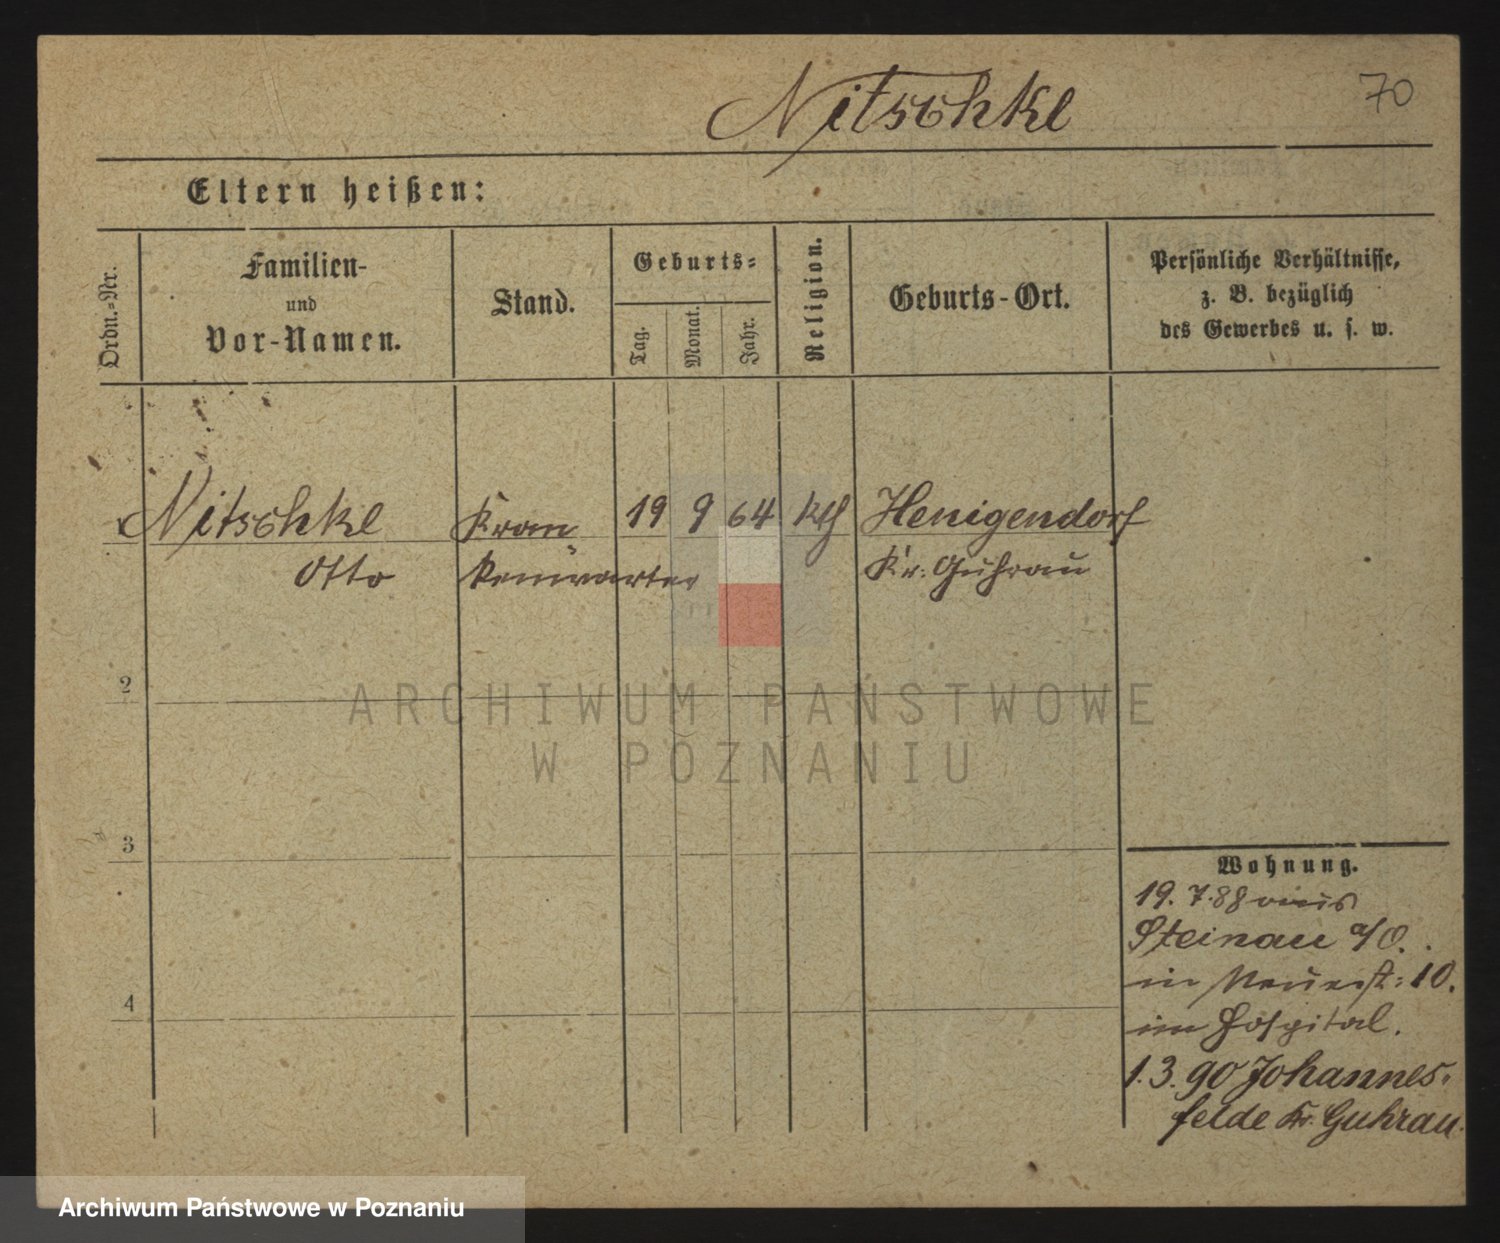 Nitschke
70
Eltern heißen:
Ordn.-Nr.
Familien-
und
Vor-Namen.
Stand.
Geburts-
Tag.
Monat.
Jahr.
Religion.
Geburts-Ort.
Persönliche Verhältnisse,
z. B. bezüglich
des Gewerbes u. s. w.
Nitschke Kran 19 9 64 kth Henigendorf
Otto kenwärter Kr. Guhrau
2
ARCHIWUM PAŃSTWOWE
W POZNANIU
3
4
Wohnung.
19. 7. 88 aus
Steinau a/O.
in 10.
im Hospital.
1. 3. 90 Johannes-
felde Kr. Guhrau.
Archiwum Państwowe w Poznaniu